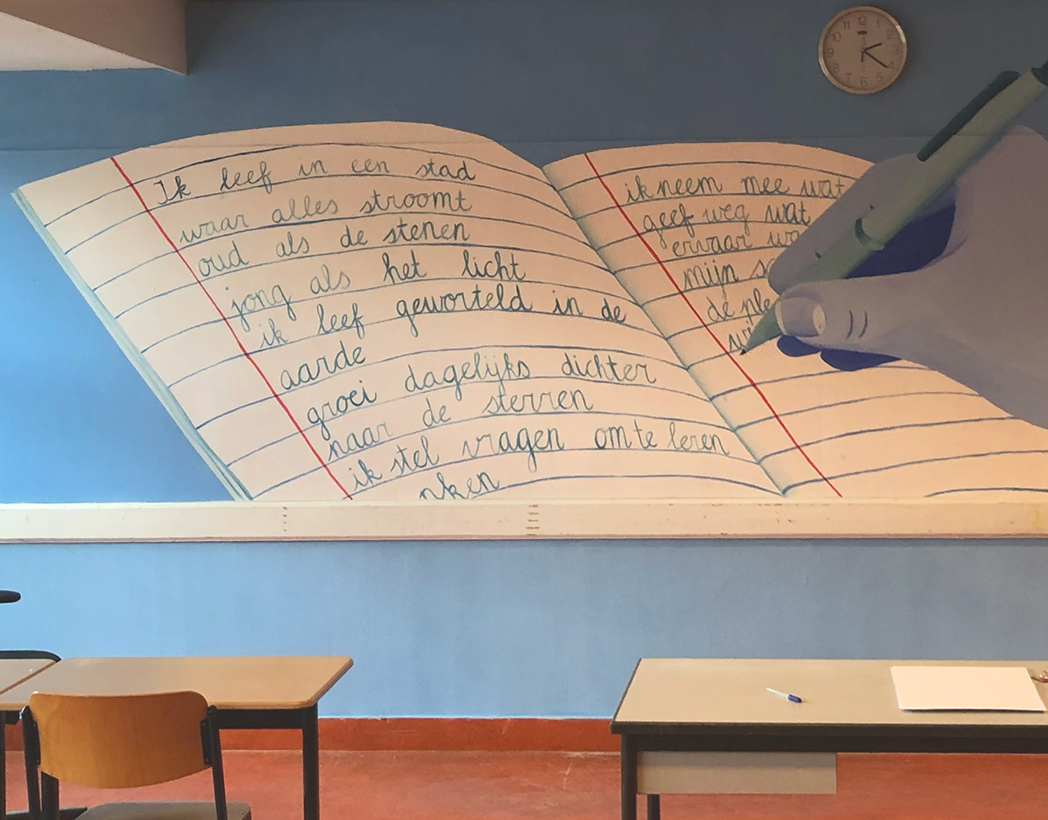 Ik leef in een stad
waar alles stroomt
oud als de stenen
jong als het licht
ik leef geworteld in de
aarde
groei dagelijks dichter
naar de sterren
ik stel vragen om te leren
ik neem mee wat
geef weg wat
ervaar
mijn
de
12
1
2
3
5
6
7
8
9
10
11